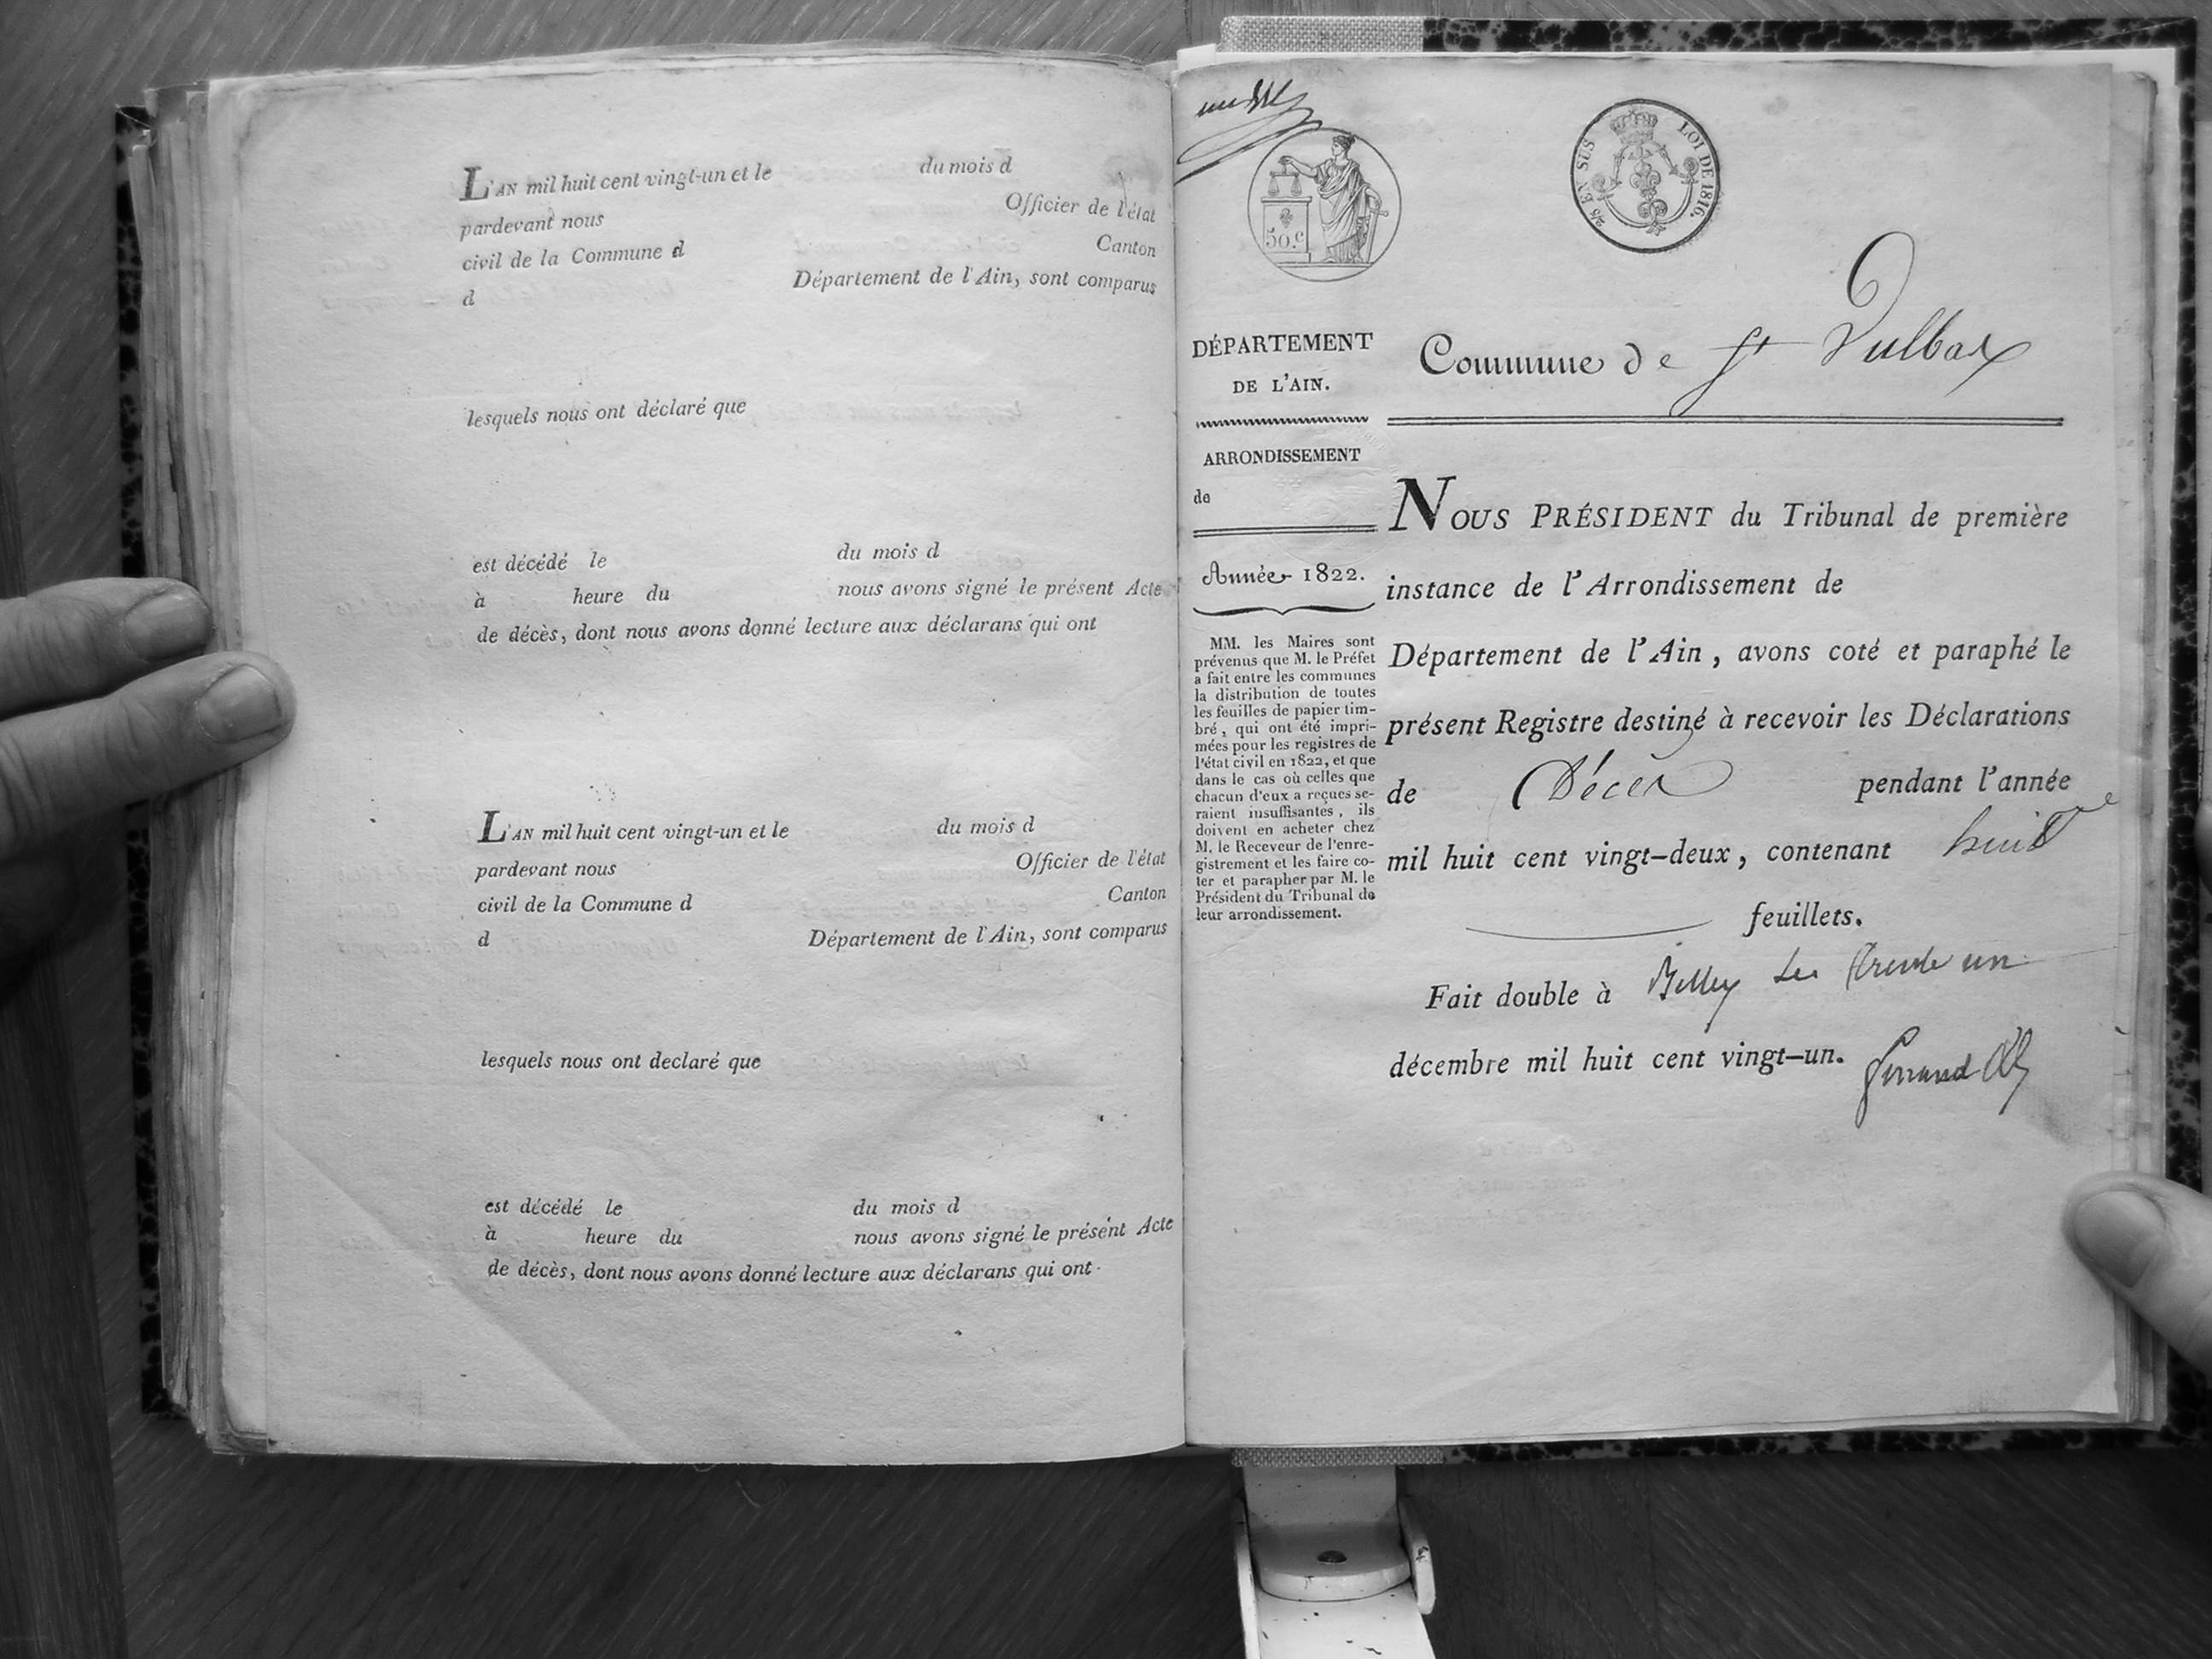 L'AN mil huit cent vingt-un et le du mois d
pardevant nous Officier de l'état
civil de la Commune d Canton
d Département de l'Ain, sont comparus
lesquels nous ont déclaré que
est décédé le du mois d
à heure du nous avons signé le présent Acte
de décès, dont nous avons donné lecture aux déclarans qui ont
L'AN mil huit cent vingt-un et le du mois d
pardevant nous Officier de l'état
civil de la Commune d Canton
d Département de l'Ain, sont comparus
lesquels nous ont declaré que
est décédé le du mois d
à heure du nous avons signé le présent Acte
de décès, dont nous avons donné lecture aux déclarans qui ont
50.c
EN SUS LOI DE 1816.
DÉPARTEMENT
DE L'AIN.
ARRONDISSEMENT
de
Année 1822.
MM. les Maires sont
prévenus que M. le Préfet
a fait entre les communes
la distribution de toutes
les feuilles de papier tim-
bré, qui ont été impri-
mées pour les registres de
l'état civil en 1822, et que
dans le cas où celles que
chacun d'eux a reçues se-
raient insuffisantes, ils
doivent en acheter chez
M. le Receveur de l'enre-
gistrement et les faire co-
ter et parapher par M. le
Président du Tribunal de
leur arrondissement.
Commune de St Vulbas
NOUS PRÉSIDENT du Tribunal de première
instance de l'Arrondissement de
Département de l'Ain, avons coté et paraphé le
présent Registre destiné à recevoir les Déclarations
de Décès pendant l'année
mil huit cent vingt-deux, contenant huit
feuillets.
Fait double à Belley le trente un
décembre mil huit cent vingt-un.